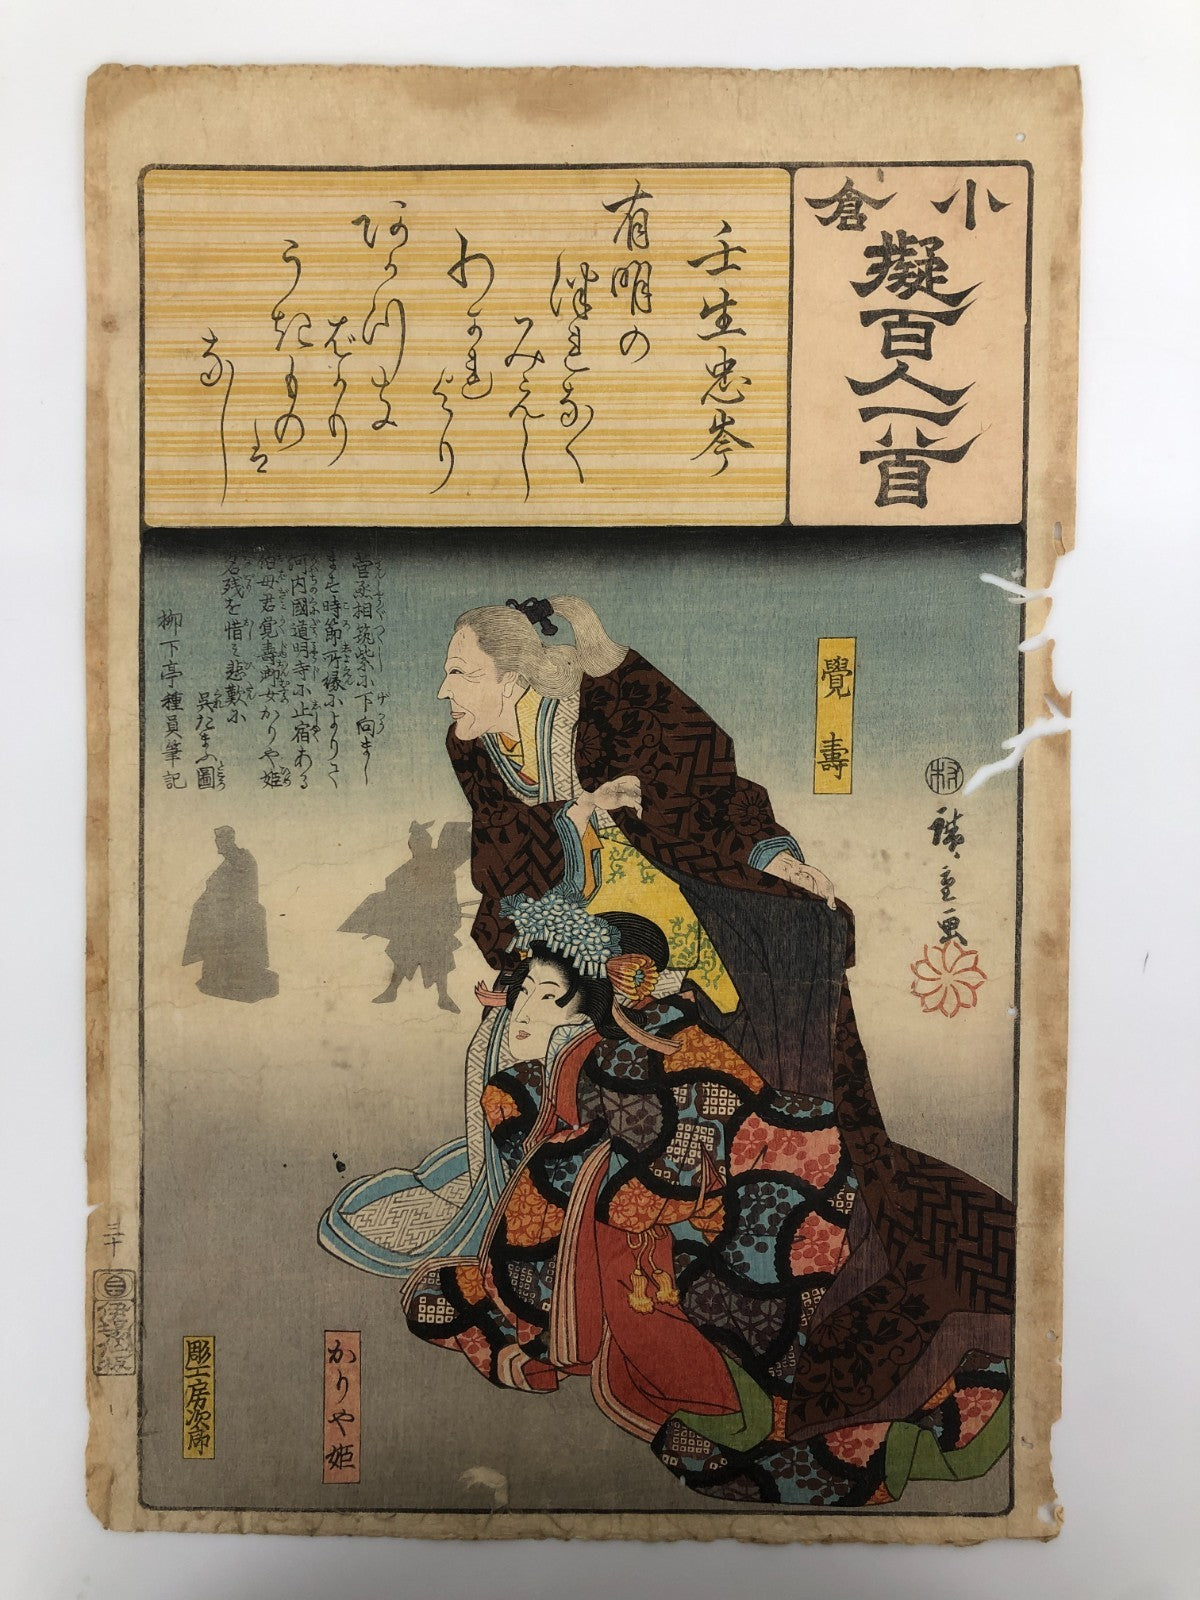 小倉
擬百人一首
壬生忠岑
有明の
つれなく
みえし
わかれ
より
あかつき
ばかり
うきもの
は
なし
菅丞相筑紫に下向まし
ます時節所縁によりて
河内國道明寺に止宿ある
伯母君覚壽御女かりや姫
名残を惜み悲歎に
呉たまふ圖
柳下亭種員筆記
覺壽
村
廣重画
かりや姫
彫工房次郎
三十
伊場仙板